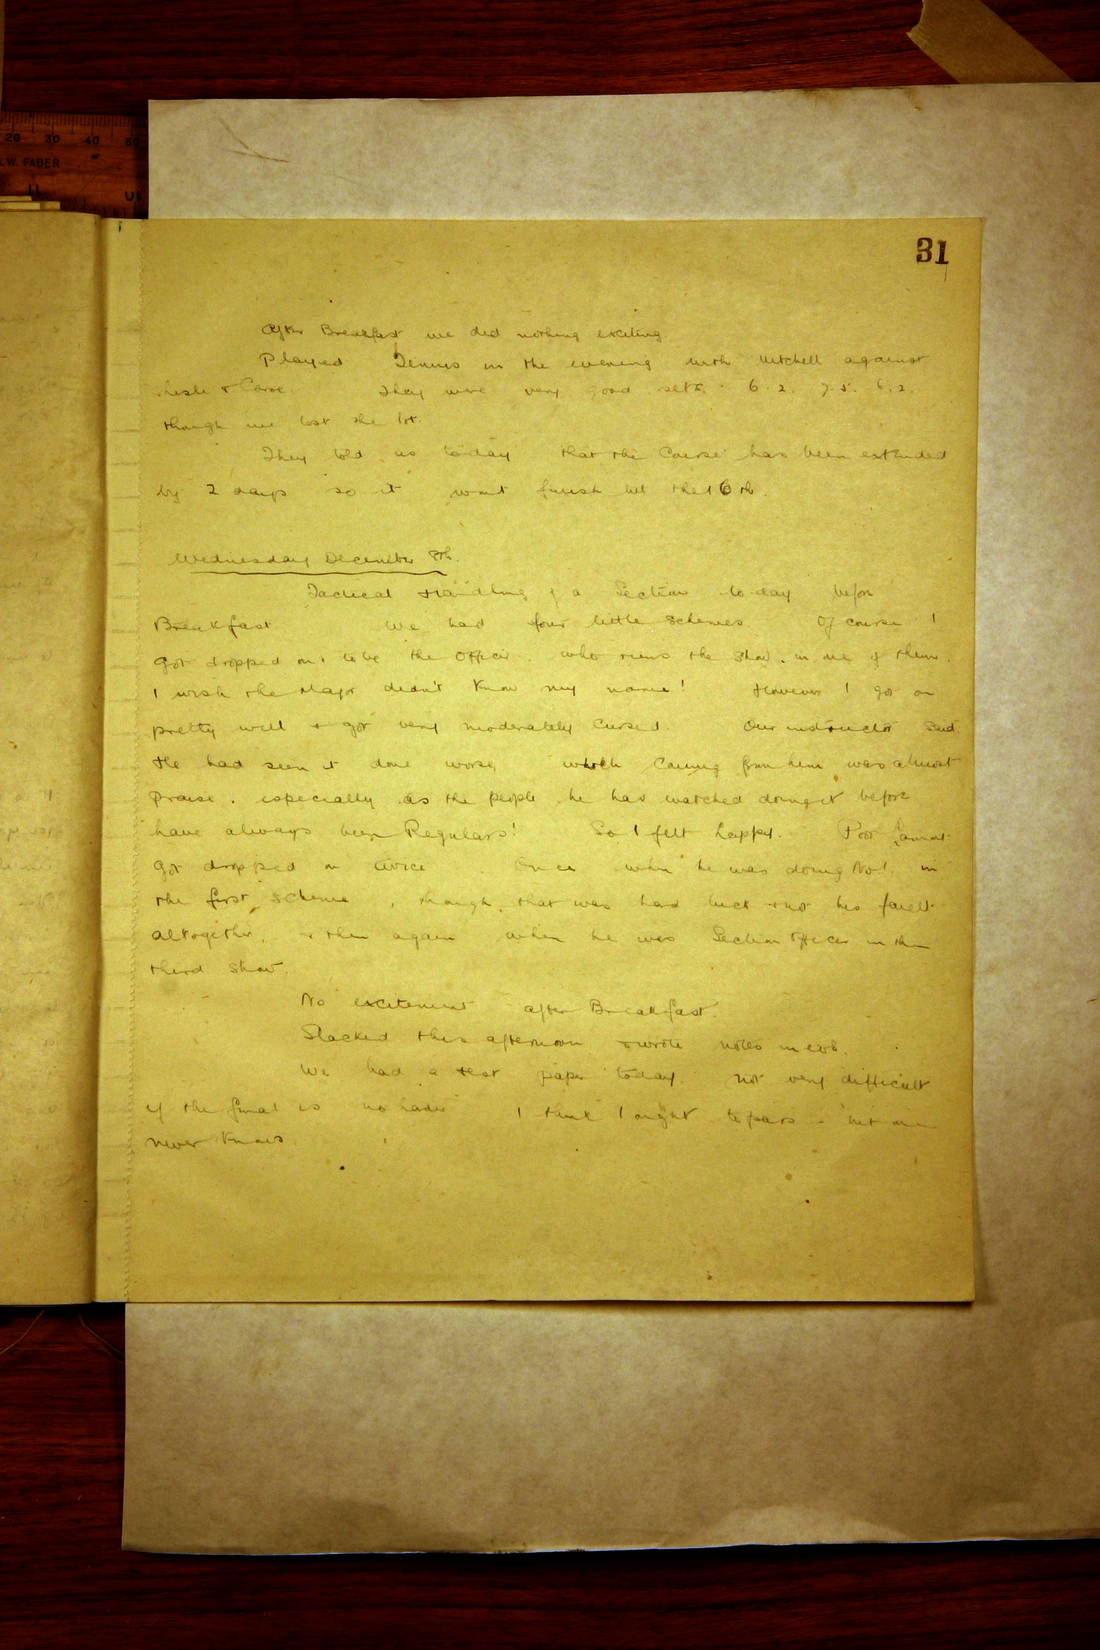 20 30 40 50
W. FABER
31
After Breakfast we did nothing exciting
Played Tennis in the evening with Mitchell against
& They were very good sets 6.2. 7.5. 6.2.
though we lost the lot.
They told us today that the Course has been extended
by 2 days so it wont finish till the 16th.
Wednesday December 8th.
Tactical Handling of a Section to-day before
Breakfast We had four little schemes Of course I
got dropped on to be the Officer who runs the show in one of them.
I wish the Major didn't know my name! However I got on
pretty well & got very moderately cursed. Our instructor said
He had seen it done worse, which coming from him was almost
praise. especially as the people he has watched doing it before
have always been Regulars! So I felt happy. Poor
got dropped on twice Once when he was doing No 1 in
the first scheme, though that was hard luck & not his fault
altogether, & then again when he was Section Officer in the
third show.
No excitement after Breakfast.
Slacked this afternoon & wrote notes in
We had a test paper today. Not very difficult
if the final is no harder I think I ought to pass - but one
never knows.